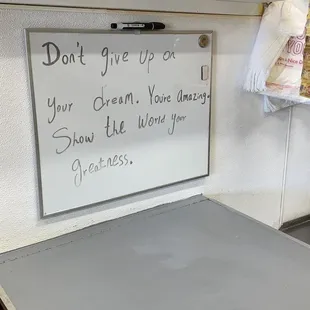 Don't give up on
your dream. You're amazing.
Show the world your
greatness.